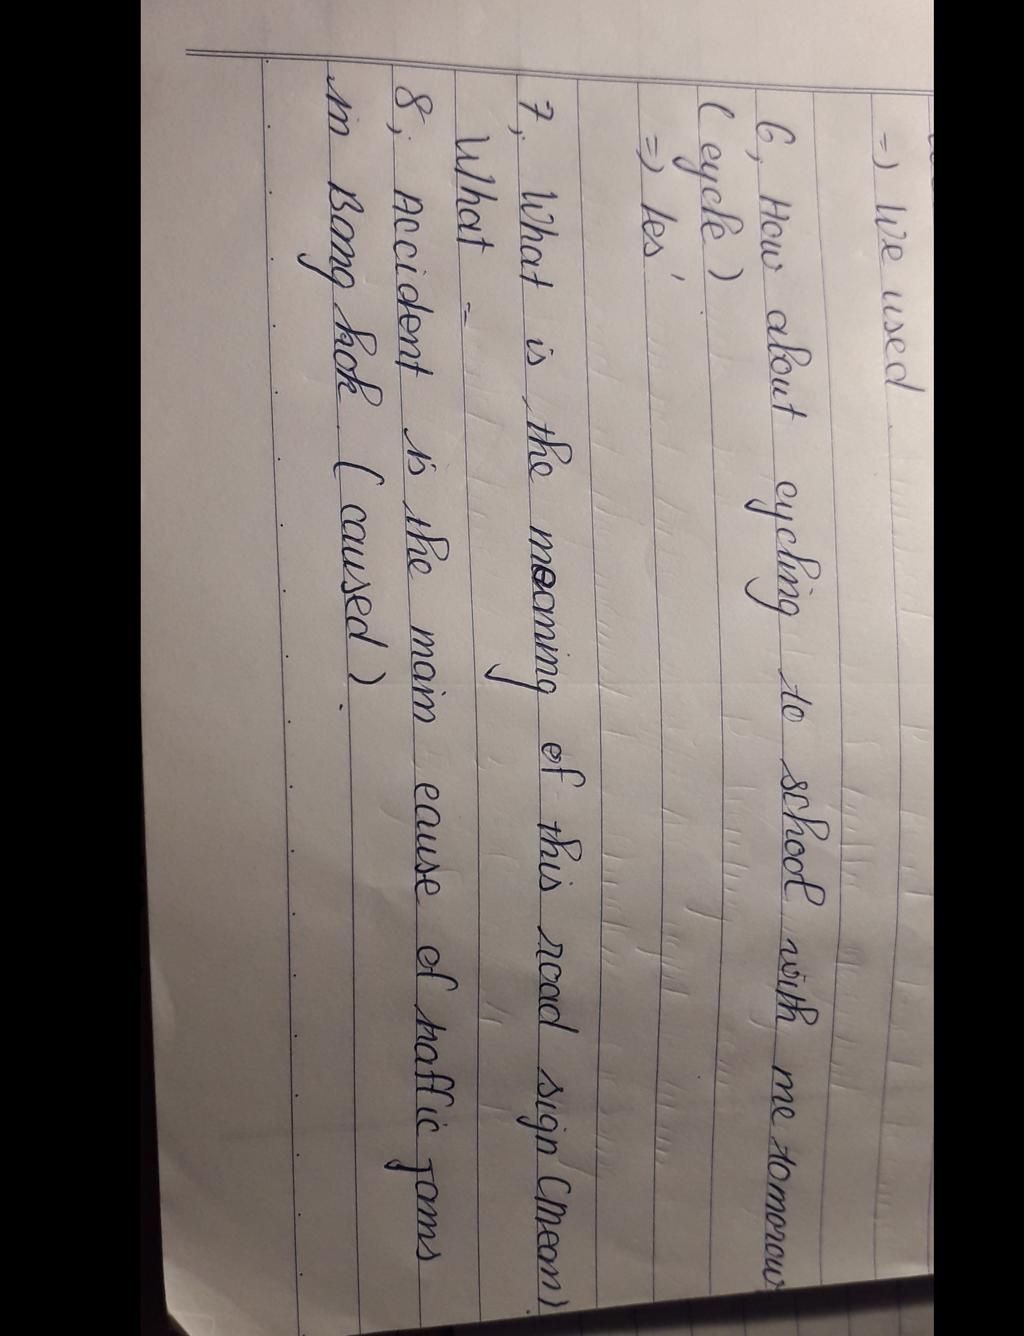 =) We used
6, How about cycling to school with me tomorow
(cycle)
=) les'
7, What is the meaning of this road sign (mean)
What =
8, Accident is the main cause of traffic jams
in Bang kok (caused).